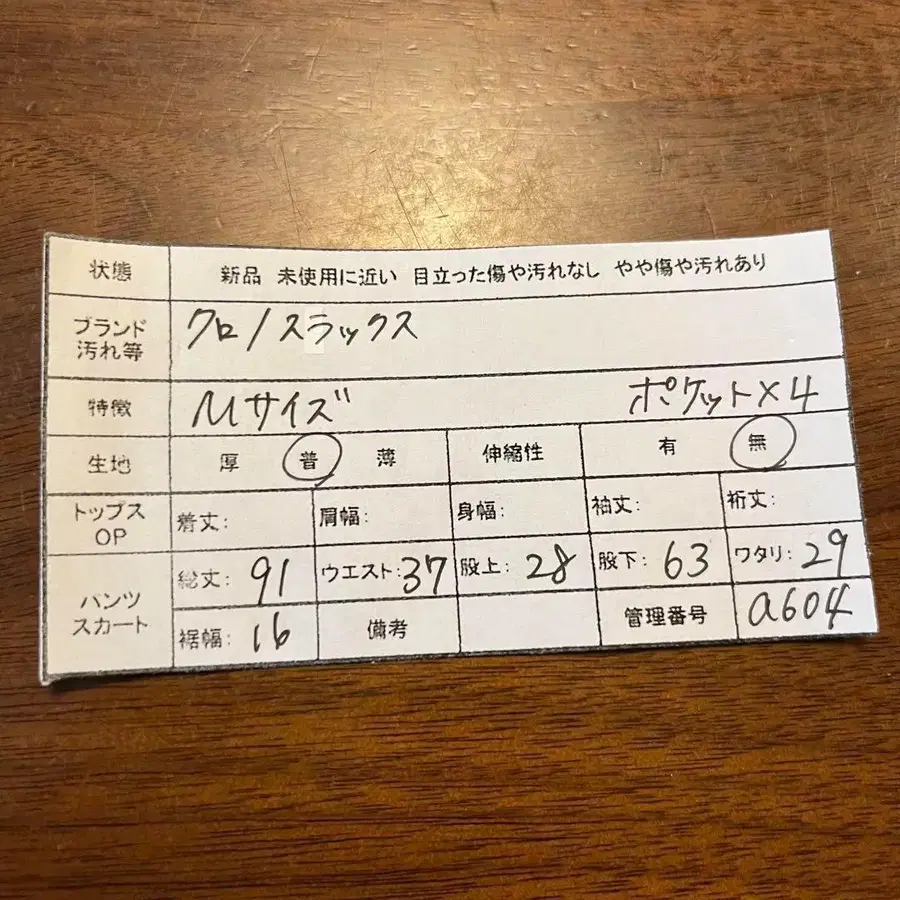 状態 新品 未使用に近い 目立った傷や汚れなし やや傷や汚れあり
ブランド
汚れ等
クロ/スラックス
特徴 Mサイズ ポケット×4
生地 厚 普 薄 伸縮性 有 無
トップス
OP
着丈: 肩幅: 身幅: 袖丈: 裄丈:
パンツ
スカート
総丈: 91 ウエスト: 37 股上: 28 股下: 63 ワタリ: 29
裾幅: 16 備考 管理番号 a604